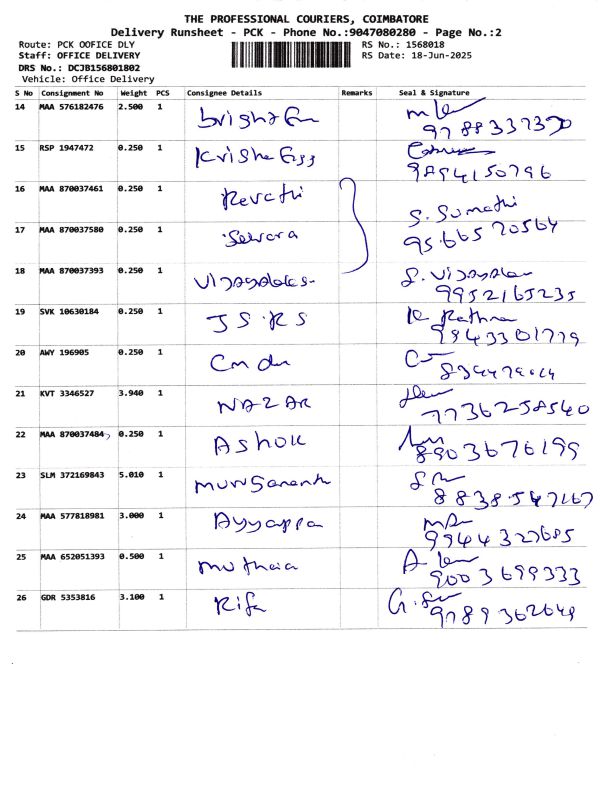 THE PROFESSIONAL COURIERS, COIMBATORE
Delivery Runsheet - PCK - Phone No.:9047080280 - Page No.:2
Route: PCK OOFICE DLY RS No.: 1568018
Staff: OFFICE DELIVERY RS Date: 18-Jun-2025
DRS No.: DCJB156801802
Vehicle: Office Delivery
S No Consignment No Weight PCS Consignee Details Remarks Seal & Signature
14 MAA 576182476 2.500 1
15 RSP 1947472 0.250 1
9894150796
16 MAA 870037461 0.250 1 Revathi
S. Sumathi
17 MAA 870037580 0.250 1 95665 70564
18 MAA 870037393 0.250 1
9952165235
19 SVK 10630184 0.250 1 JSRS
9943301779
20 AWY 196905 0.250 1
21 KVT 3346527 3.940 1 NAZAR
7736258540
22 MAA 870037484 0.250 1 Ashok
8903676199
23 SLM 372169843 5.010 1
8838547167
24 MAA 577818981 3.000 1 Ayyappa
9944327685
25 MAA 652051393 0.500 1 muthaia
9003699333
26 GDR 5353816 3.100 1
9789362649